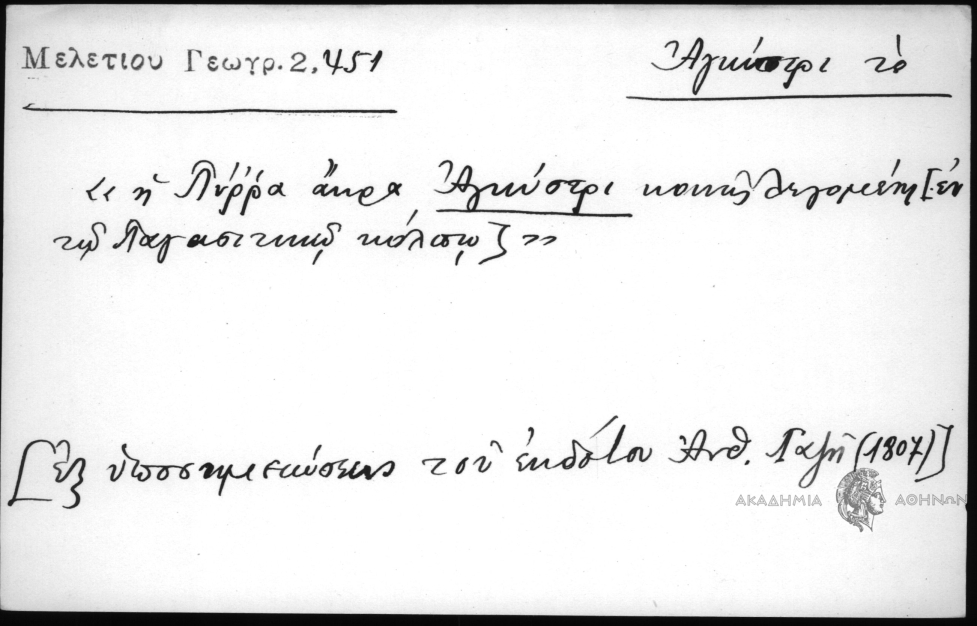 Μελετιου Γεωγρ. 2, 451
Ἀγκίστρι τὸ
«ἡ Πύῤῥα ἄκρα Ἀγκίστρι κοινῶς λεγομένη [ἐν
τῷ Παγασιτικῷ κόλπῳ]»
[ἐξ ὑποσημειώσεως τοῦ ἐκδότου Ἀνθ. Γαζῆ (1807)]
ΑΚΑΔΗΜΙΑ ΑΘΗΝΩΝ